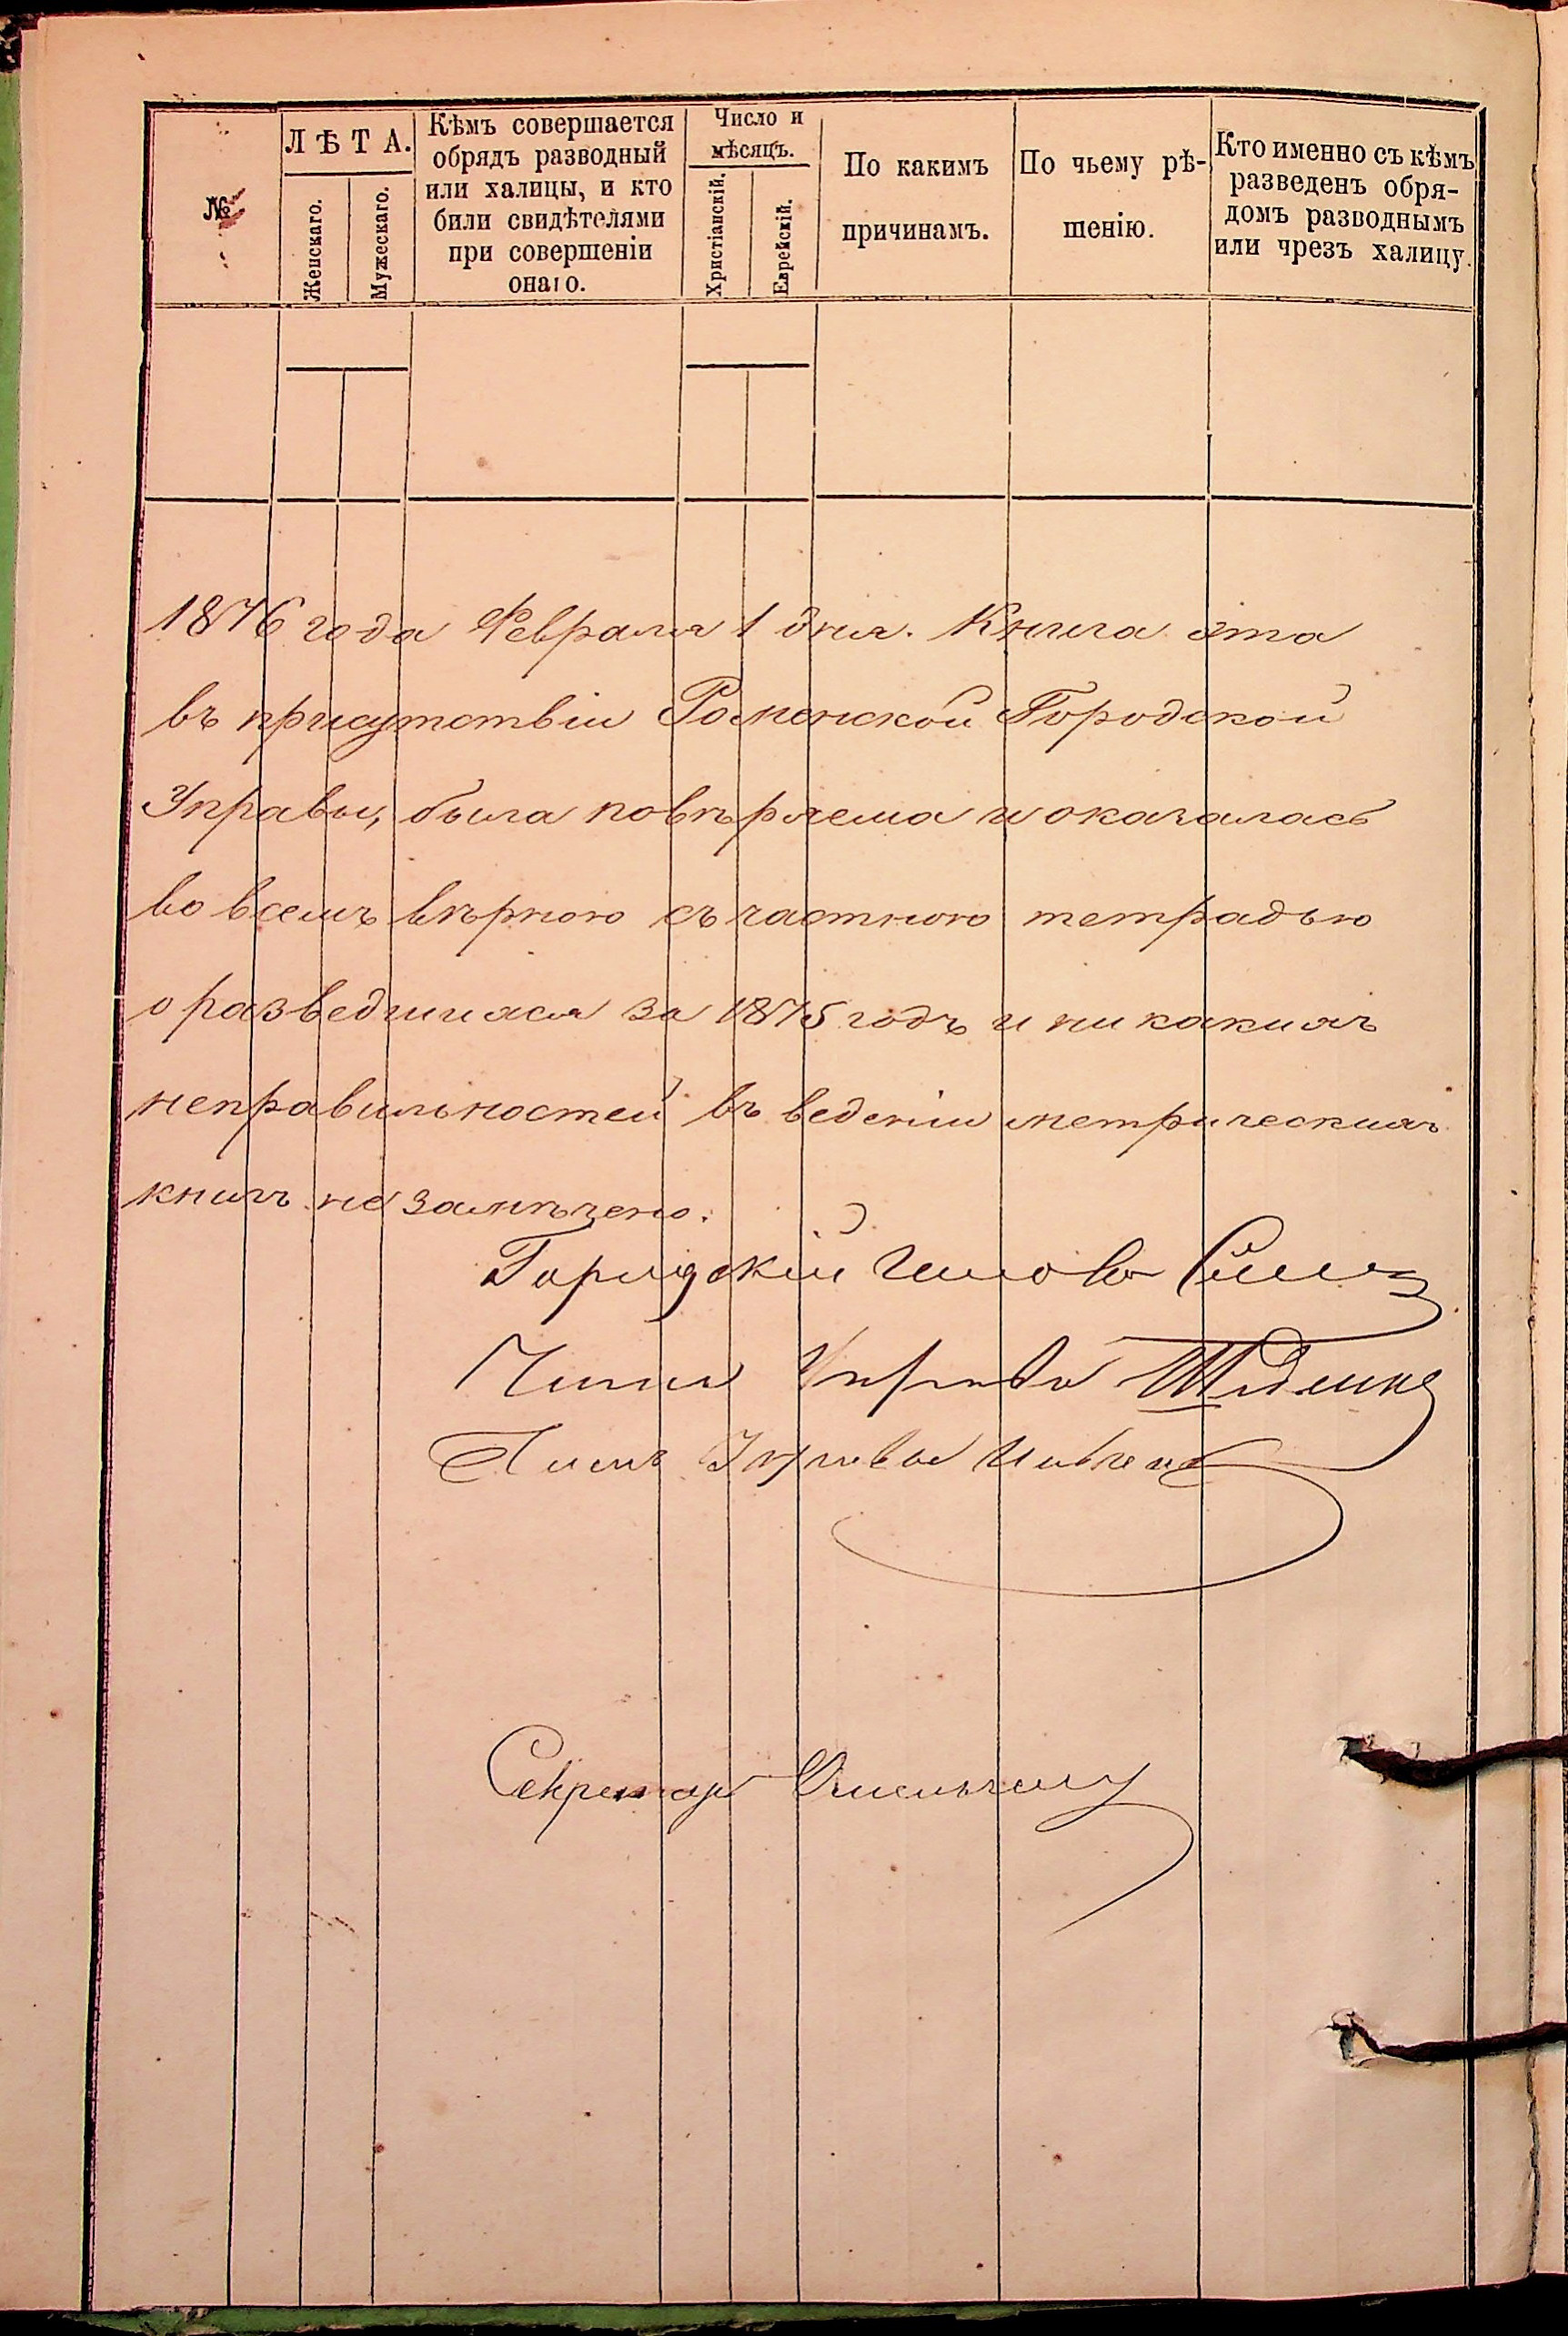 №
ЛѢТА.
Женскаго.
Мужескаго.
Кѣмъ совершается
обрядъ разводный
или халицы, и кто
били свидѣтелями
при совершеніи
онаго.
Число и
мѣсяцъ.
Христіанскій.
Еврейскій.
По какимъ
причинамъ.
По чьему рѣ-
шенію.
Кто именно съ кѣмъ
разведенъ обря-
домъ разводнымъ
или чрезъ халицу.
1876 года Февраля 1 дня. Книга эта
въ присутствіи Роменской Городской
Управы, была повѣряема и оказалась
во всемъ вѣрною съ частною тетрадью
о разведшихся за 1875 годъ и ни какихъ
неправильностей въ веденіи метрическихъ
книгъ не замѣчено.
Городскій Голова
Члены Управы
Членъ Управы
Секретарь